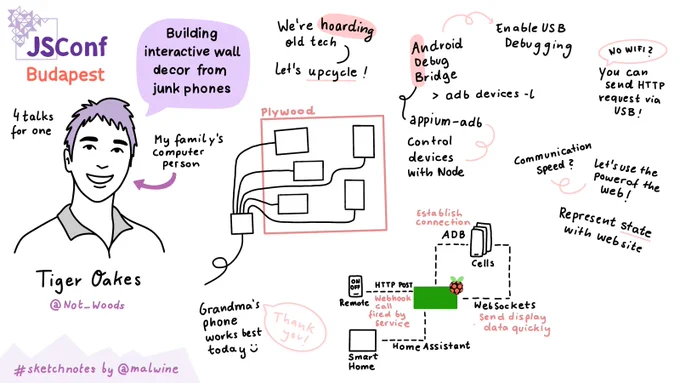 JSConf
Budapest
Building
interactive wall
decor from
junk phones
4 talks
for one
My family's
computer
person
Tiger Oakes
@Not_Woods
#sketchnotes by @malwine
We're hoarding
old tech
Let's upcycle!
Plywood
Grandma's
phone
works best
today
Thank
you!
Android
Debug
Bridge
Enable USB
Debugging
> adb devices -l
appium-adb
Control
devices
with Node
NO WIFI?
You can
send HTTP
request via
USB!
Communication
speed?
Let's use the
Power of the
Web!
Represent state
with website
Establish
connection
ADB
Cells
ON
OFF
Remote
HTTP POST
Webhook
call
fired by
service
WebSockets
Send display
data quickly
Smart
Home
Home Assistant